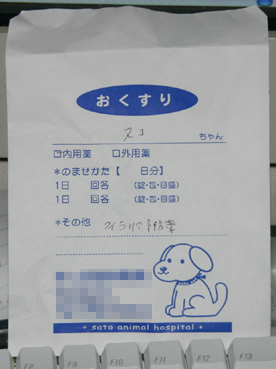 おくすり
ヌコ ちゃん
☑内用薬 □外用薬
*のませかた【 日分】
1日 回各 (錠・包・目盛)
1日 回各 (錠・包・目盛)
*その他 フィラリア予防薬
sato animal hospital
F8 F9 F10 F11 F12 F13